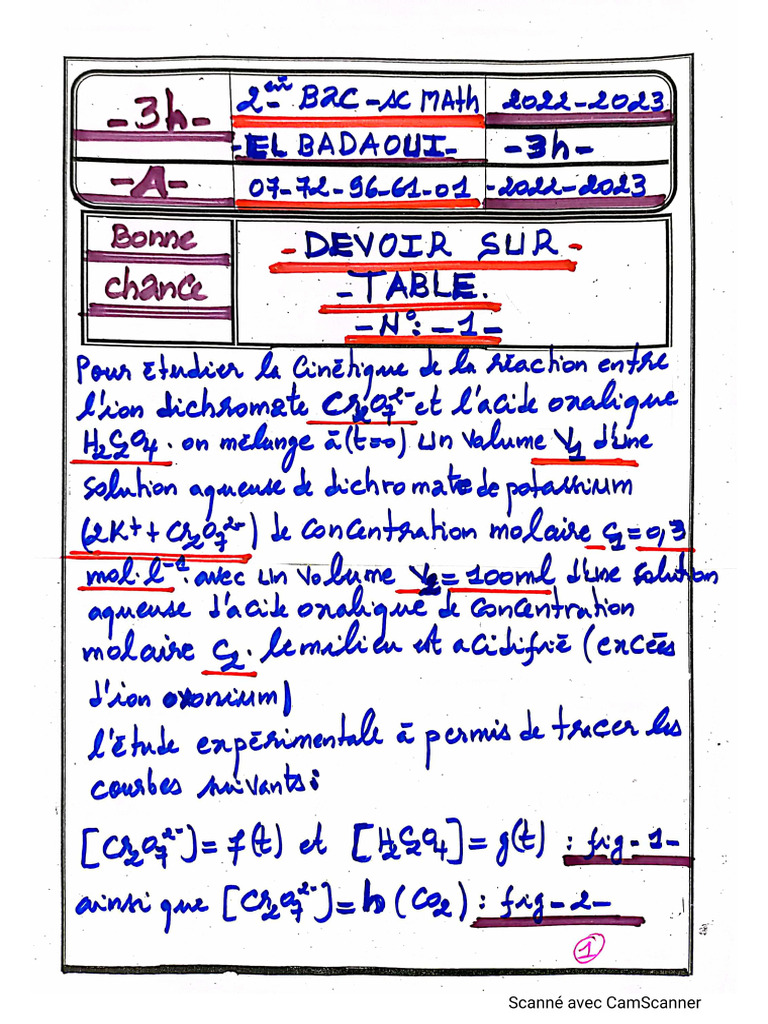 -3h-
2ème BAC - SC MATH
2022-2023
-EL BADAOUI-
-3h-
-A-
07-72-96-61-01
-2022-2023
Bonne
chance
-DEVOIR SUR-
-TABLE.
-N°: -1-
Pour étudier la Cinétique de la réaction entre
l'ion dichromate Cr₂O₇²⁻ et l'acide oxalique
H₂C₂O₄. on mélange à (t=0) un volume V₁ d'une
solution aqueuse de dichromate de potassium
(2K⁺ + Cr₂O₇²⁻) de concentration molaire C₁ = 0,3
mol.l⁻¹. avec un volume V₂ = 100ml d'une solution
aqueuse d'acide oxalique de concentration
molaire C₂. le milieu est acidifié (excées
d'ion oxonium)
l'étude expérimentale à permis de tracer les
courbes suivants:
[Cr₂O₇²⁻] = f(t) et [H₂C₂O₄] = g(t) : fig-1-
ainsi que [Cr₂O₇²⁻] = h(CO₂) : fig-2-
1
Scanné avec CamScanner